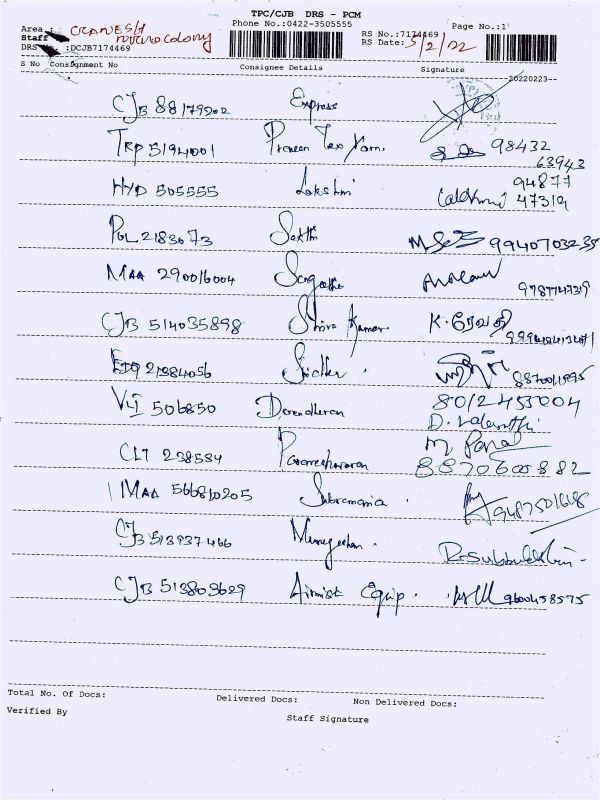 TPC/CJB DRS - PCM
Phone No.:0422-3505555
Page No.:1
Area :
Staff colony
RS No.:7174469
DRS No. :DCJB7174469
RS Date: 5/2/22
S No Consignment No Consignee Details Signature
20220223--
CJB 88179202 Express
TRP 5194001 Praveen Tex Yarn. 98432
63943
HYD 505555 Lakshmi 94877
47319
POL 2183073 Sakthi 9940703235
MAA 290016004 9787747319
CJB 514035898 Shiva Kumar K. ரேவதி
21984056 Sridhar . 8870011995
506850 Devendheran 8012455004
CLT 238534 Parameshwaran
8870600882
MAA 566810205 Subramania . 9487501618
CJB 513937466 Murugeshan .
CJB 513803629 Airmist Equip . 9600458575
Total No. Of Docs: Delivered Docs: Non Delivered Docs:
Verified By Staff Signature